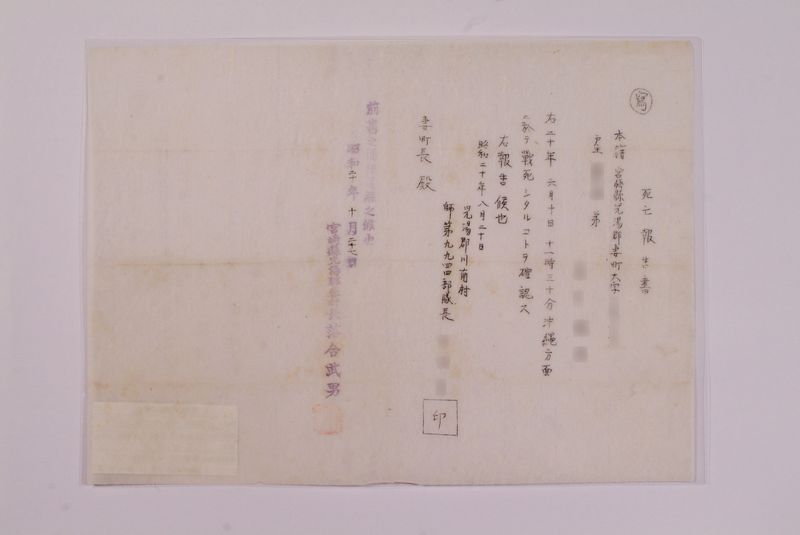 寫
死亡報告書
本籍 宮崎縣児湯郡妻町大字
戸主 弟
右二十年六月十日十一時三十分沖縄方面
ニ於テ戰死シタルコトヲ確認ス
右報告候也
昭和二十年八月二十日
児湯郡川南村
師第九九四四部隊長
印
妻町長殿
昭和二十年十月二十七日
宮崎縣児湯郡妻町長落合武男